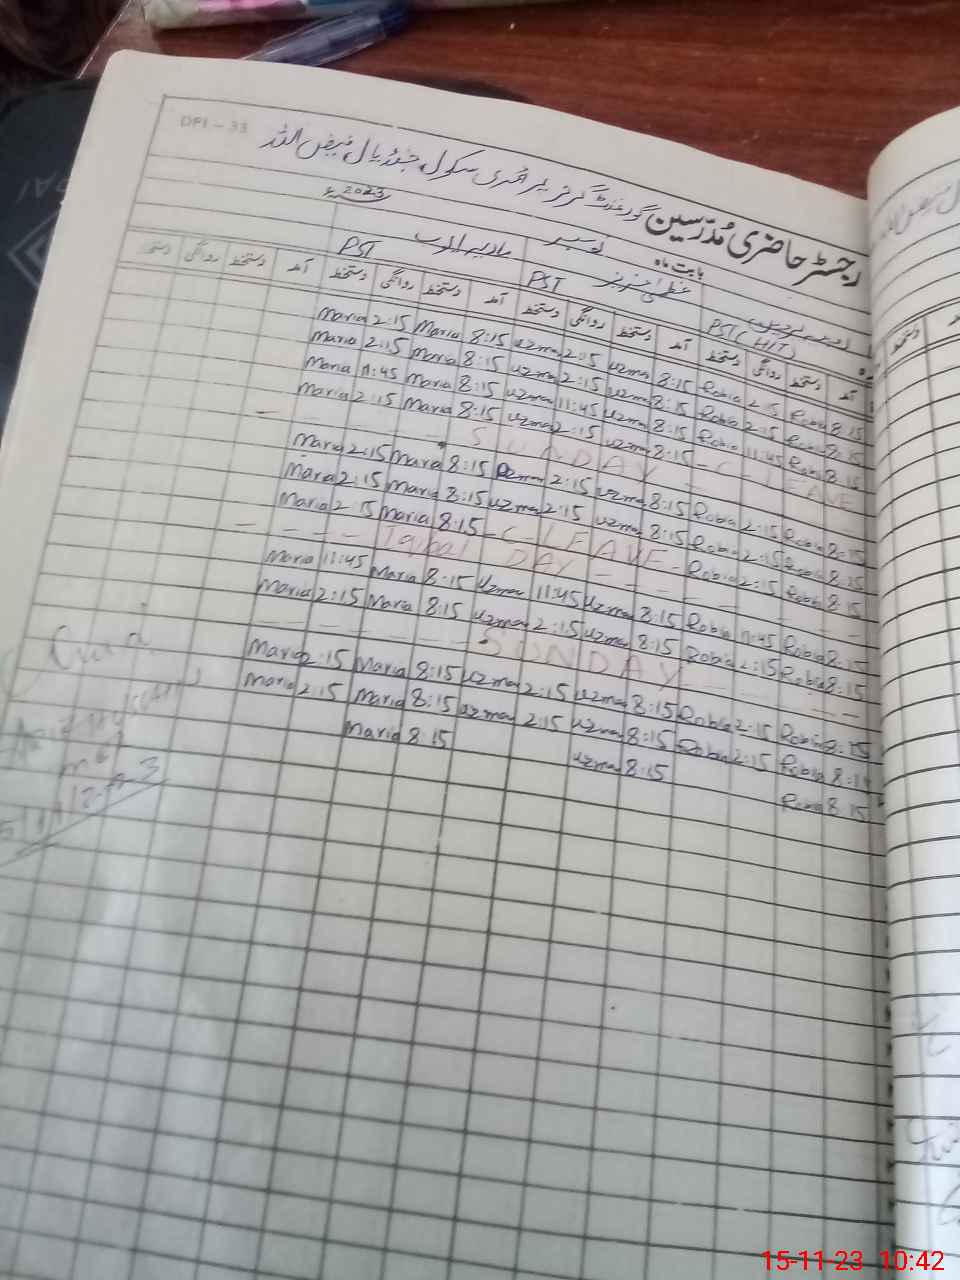 DPI - 33
رجسٹر حاضری مدرسین گورنمنٹ گرلز پرائمری سکول جنڈیال فیض اللہ
بابت ماہ نومبر 2023ء
PST (HT) PST PST
آمد دستخط روانگی دستخط آمد دستخط روانگی دستخط آمد دستخط روانگی دستخط آمد دستخط روانگی دستخط
8:15 Robia 2:15 Robia 8:15 Uzma 2:15 Uzma 8:15 Maria 2:15 Maria
8:15 Robia 2:15 Robia 8:15 Uzma 2:15 Uzma 8:15 Maria 2:15 Maria
8:15 Robia 11:45 Robia 8:15 Uzma 11:45 Uzma 8:15 Maria 11:45 Maria
C-LEAVE 8:15 Uzma 2:15 Uzma 8:15 Maria 2:15 Maria
SUNDAY
8:15 Robia 2:15 Robia 8:15 Uzma 2:15 Uzma 8:15 Maria 2:15 Maria
8:15 Robia 2:15 Robia 8:15 Uzma 2:15 Uzma 8:15 Maria 2:15 Maria
8:15 Robia 2:15 Robia C-LEAVE 8:15 Maria 2:15 Maria
Iqbal DAY
8:15 Robia 11:45 Robia 8:15 Uzma 11:45 Uzma 8:15 Maria 11:45 Maria
8:15 Robia 2:15 Robia 8:15 Uzma 2:15 Uzma 8:15 Maria 2:15 Maria
SUNDAY
8:15 Robia 2:15 Robia 8:15 Uzma 2:15 Uzma 8:15 Maria 2:15 Maria
8:15 Robia 2:15 Robia 8:15 Uzma 2:15 Uzma 8:15 Maria 2:15 Maria
8:15 Robia 8:15 Uzma 8:15 Maria
15-11-23 10:42